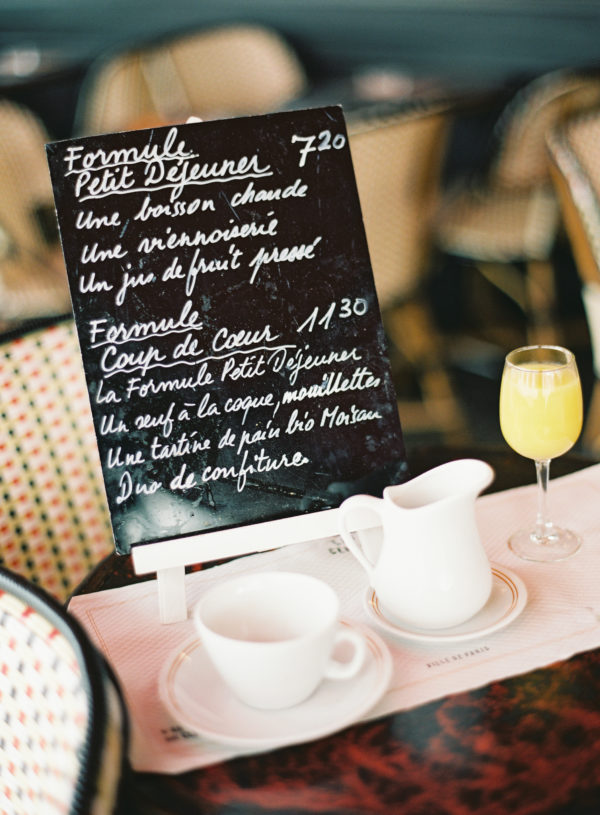 Formule 7²⁰
Petit Déjeuner
Une boisson chaude
Une viennoiserie
Un jus de fruit pressé
Formule
Coup de Cœur 11³⁰
La Formule Petit Déjeuner
Un œuf à la coque, mouillettes
Une tartine de pain bio Moisan
Duo de confiture.
VILLE DE PARIS